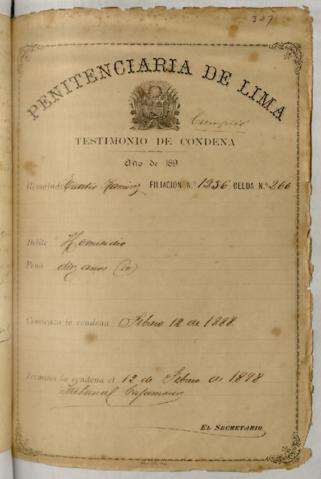 307
PENITENCIARIA DE LIMA
Cumplió
TESTIMONIO DE CONDENA
Año de 189
Rematado Ramirez FILIACION N.º 1336 CELDA N.º 266
Delito Homicidio
Pena diez años (10)
Comienza la condena Febrero 12 de 1888
Termina la condena el 12 de Febrero de 1898
Tribunal Cajamarca
EL SECRETARIO